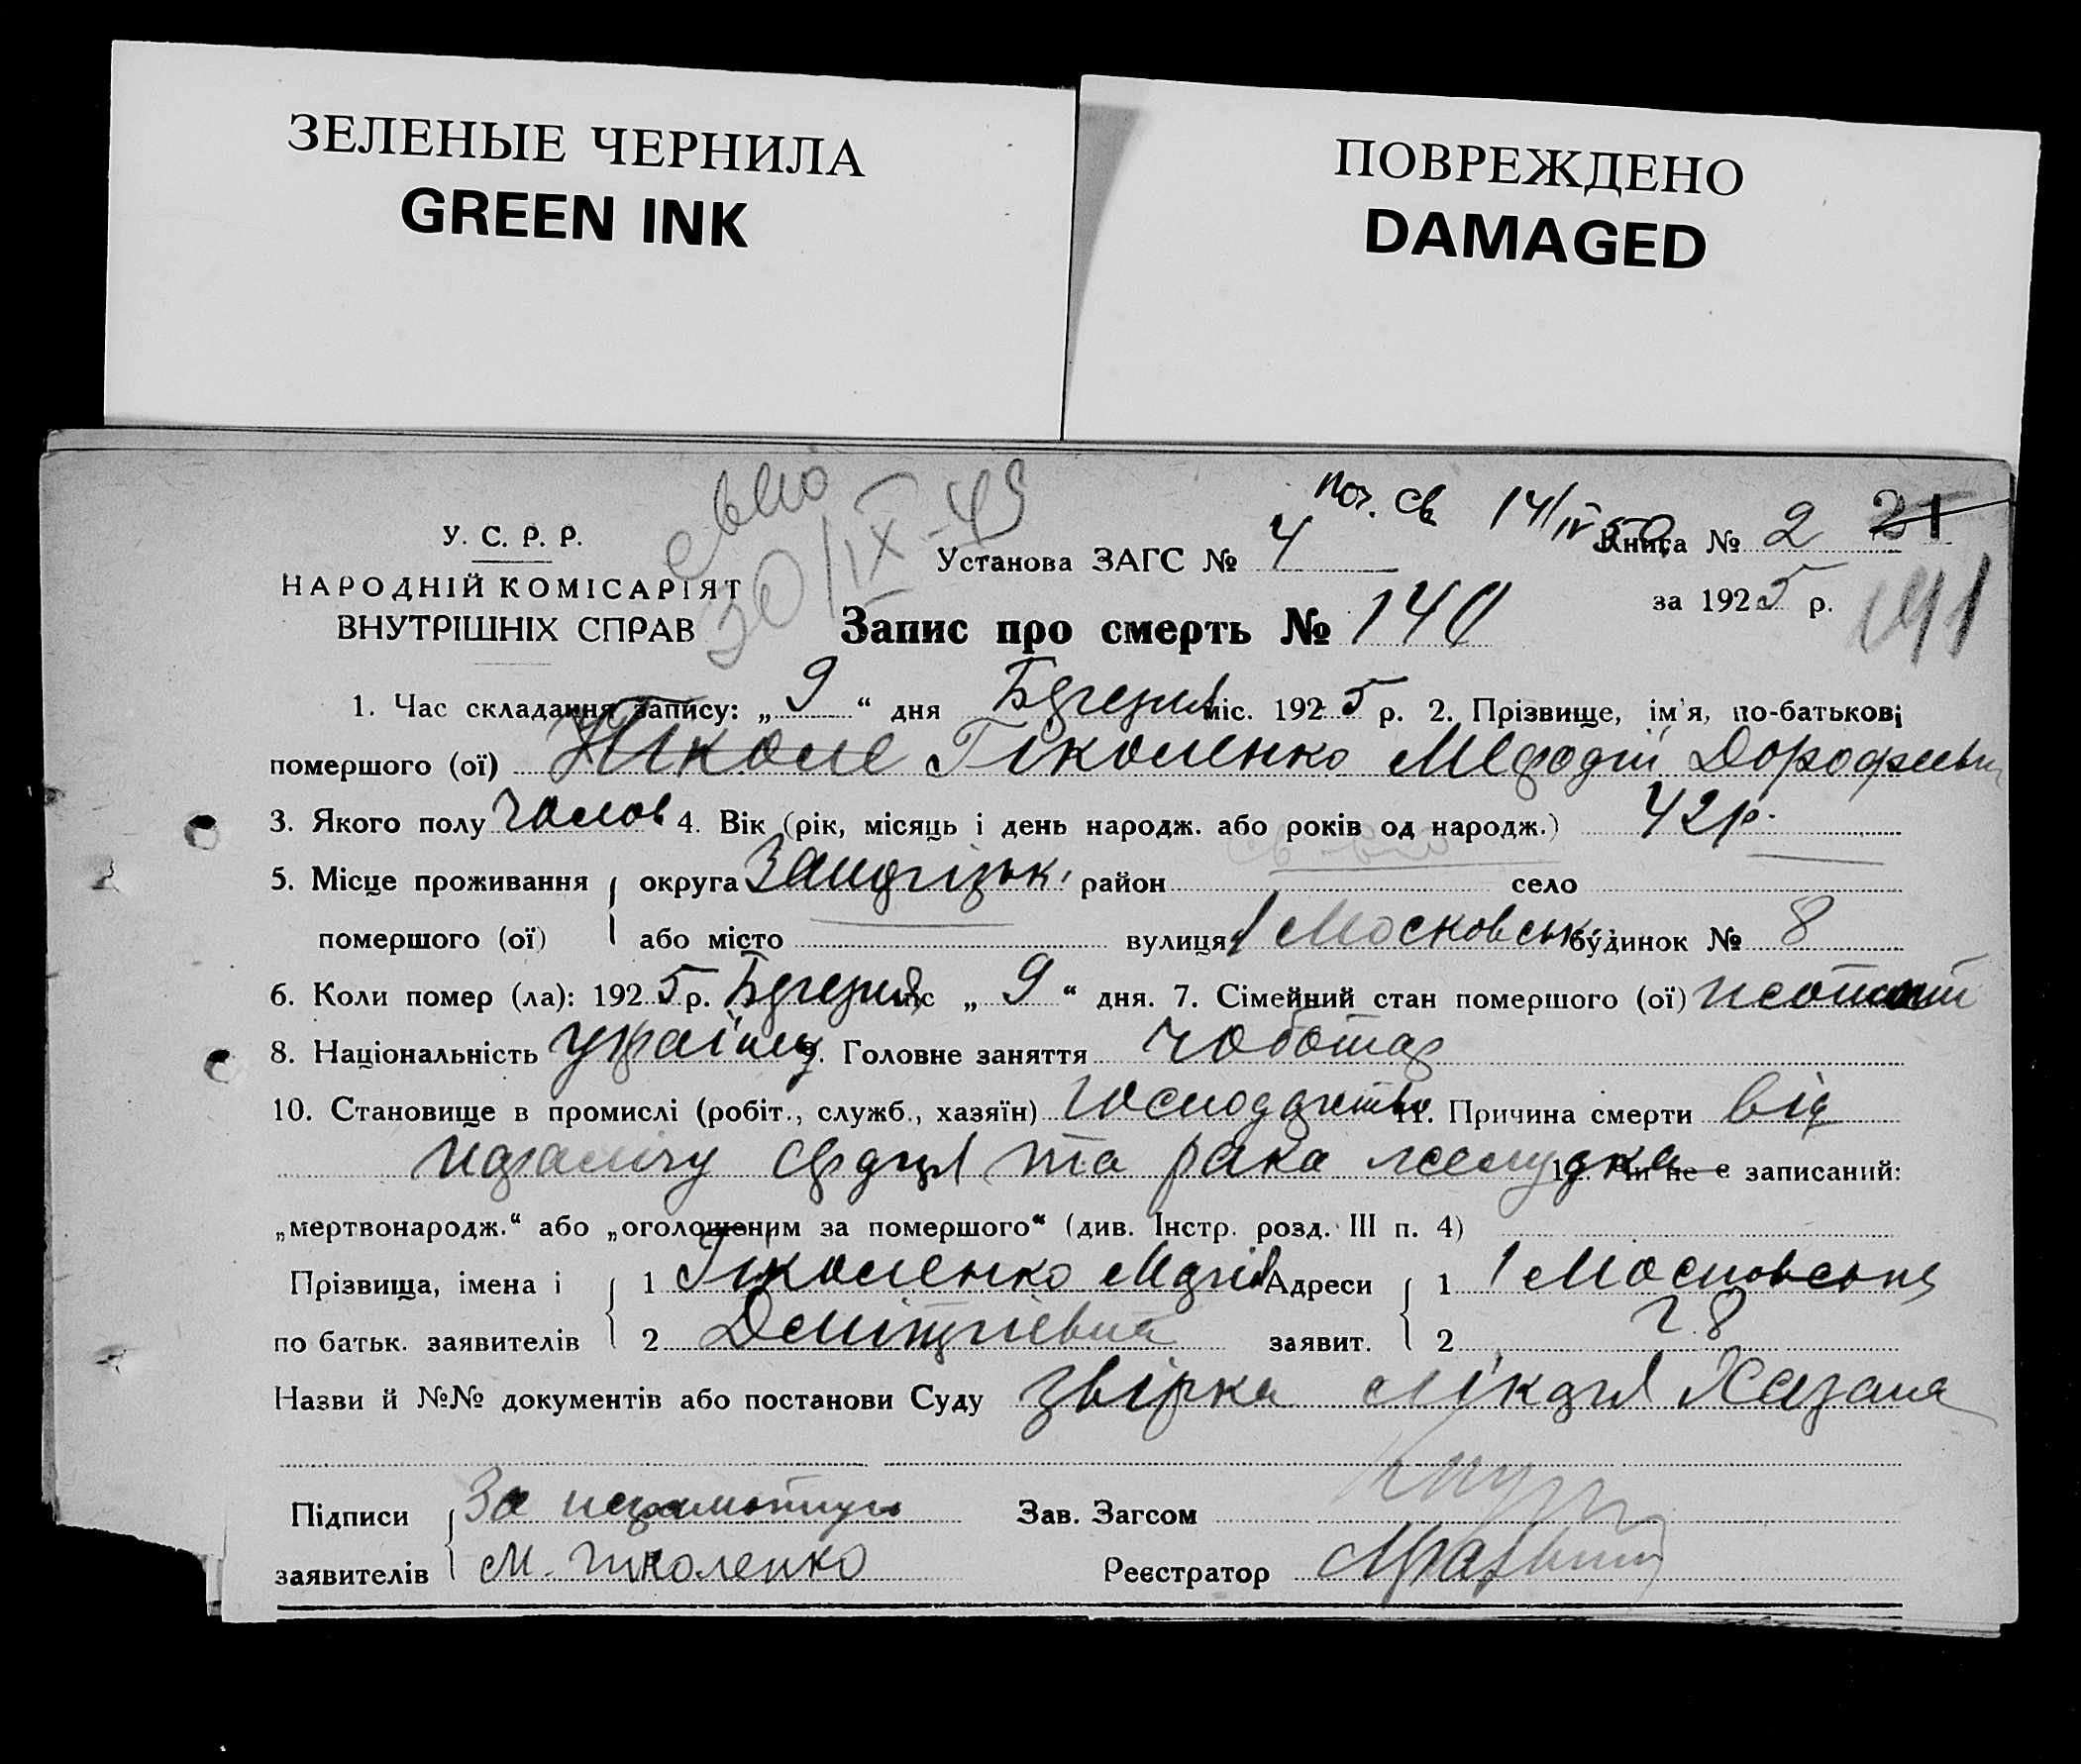 ЗЕЛЕНЫЕ ЧЕРНИЛА
GREEN INK
ПОВРЕЖДЕНО
DAMAGED
30/IX-49
14/IV 50
У. С. Р. Р.
НАРОДНІЙ КОМІСАРІЯТ
ВНУТРІШНІХ СПРАВ
Установа ЗАГС № 4
Книга № 2 21
за 1925 р.
Запис про смерть № 140
1. Час складання запису: „ 9 “ дня Березня міс. 1925 р. 2. Прізвище, ім'я, по-батькові
помершого (ої) Гіколенко Мефодій Дорофієвич
3. Якого полу чолов 4. Вік (рік, місяць і день народж. або років од народж.) 42 р.
5. Місце проживання округа район село
помершого (ої) або місто вулиця 1 Московськ. будинок № 8
6. Коли помер (ла): 1925 р. Березня міс „ 9 “ дня. 7. Сімейний стан помершого (ої)
8. Національність україн. 9. Головне заняття чоботар
10. Становище в промислі (робіт., служб., хазяїн) 11. Причина смерти від
паралічу серця та рака желудка 12. Чи не є записаний:
„мертвонародж.“ або „оголошеним за помершого“ (див. Інстр. розд. III п. 4)
Прізвища, імена і 1 Гіколенко Марія Адреси 1 1 Московська
по батьк. заявителів 2 Демітрієвна заявит. 2 8
Назви й №№ документів або постанови Суду звірка лікаря Хазана
Підписи За неграмотную Зав. Загсом
заявителів М. Гиколенко Реєстратор